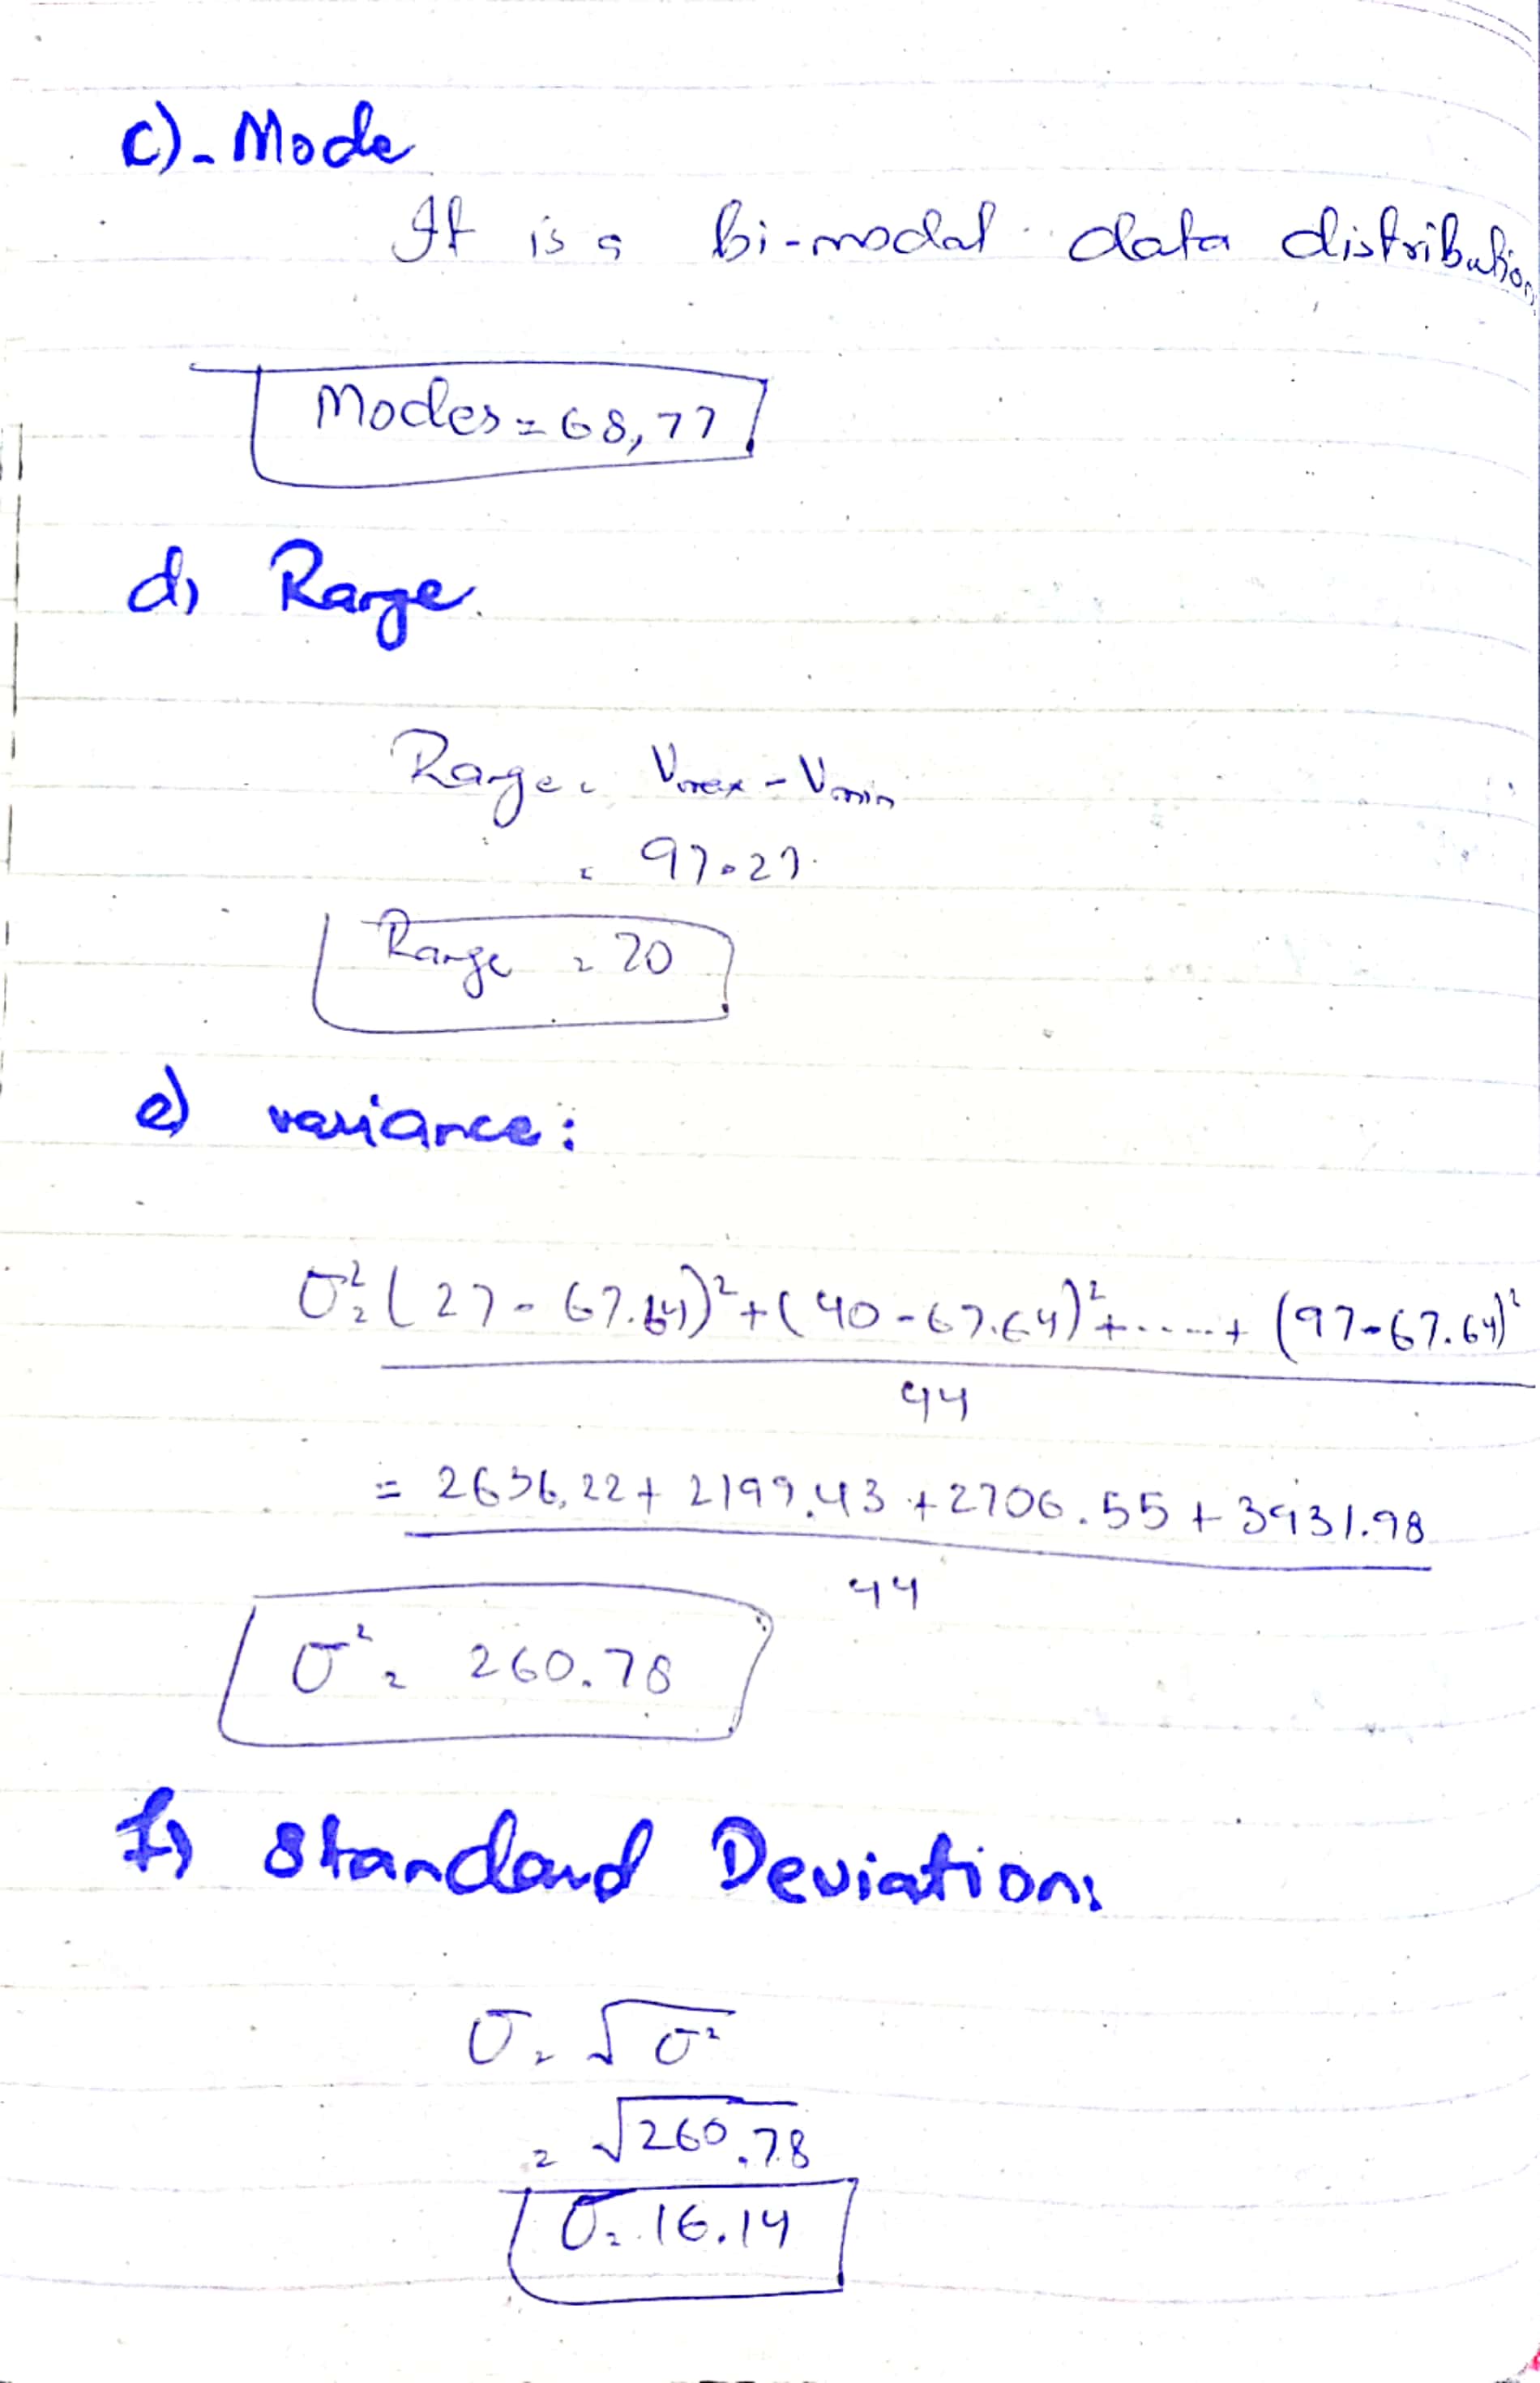 c)- Mode
It is a bi-modal data distribution
Modes = 68, 77
d) Range
Range = Vmax - Vmin
= 97-27
Range = 70
e) variance:
σ² = (27 - 67.64)² + (40 - 67.64)² + ..... + (97-67.64)²
44
= 2636.22 + 2199.43 + 2706.55 + 3931.98
44
σ² = 260.78
f) Standard Deviation:
σ = √σ²
= √260.78
σ = 16.14